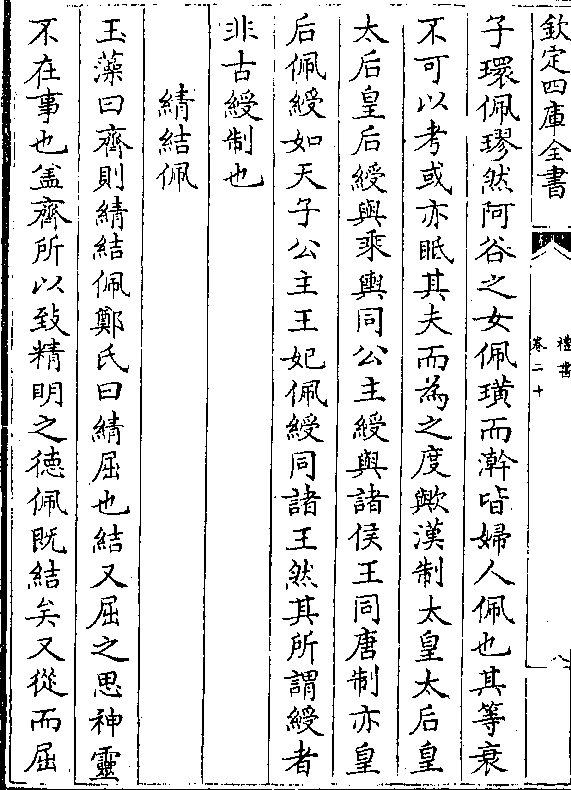 欽定四庫全書
禮書
卷二十
八
子環佩璆然阿谷之女佩璜而澣皆婦人佩也其等衰
不可以考或亦眡其夫而為之度歟漢制太皇太后皇
太后皇后綬與乘輿同公主綬與諸侯王同唐制亦皇
后佩綬如天子公主王妃佩綬同諸王然其所謂綬者
非古綬制也
綪結佩
玉藻曰齊則綪結佩鄭氏曰綪屈也結又屈之思神靈
不在事也盖齊所以致精明之徳佩既結矣又從而屈